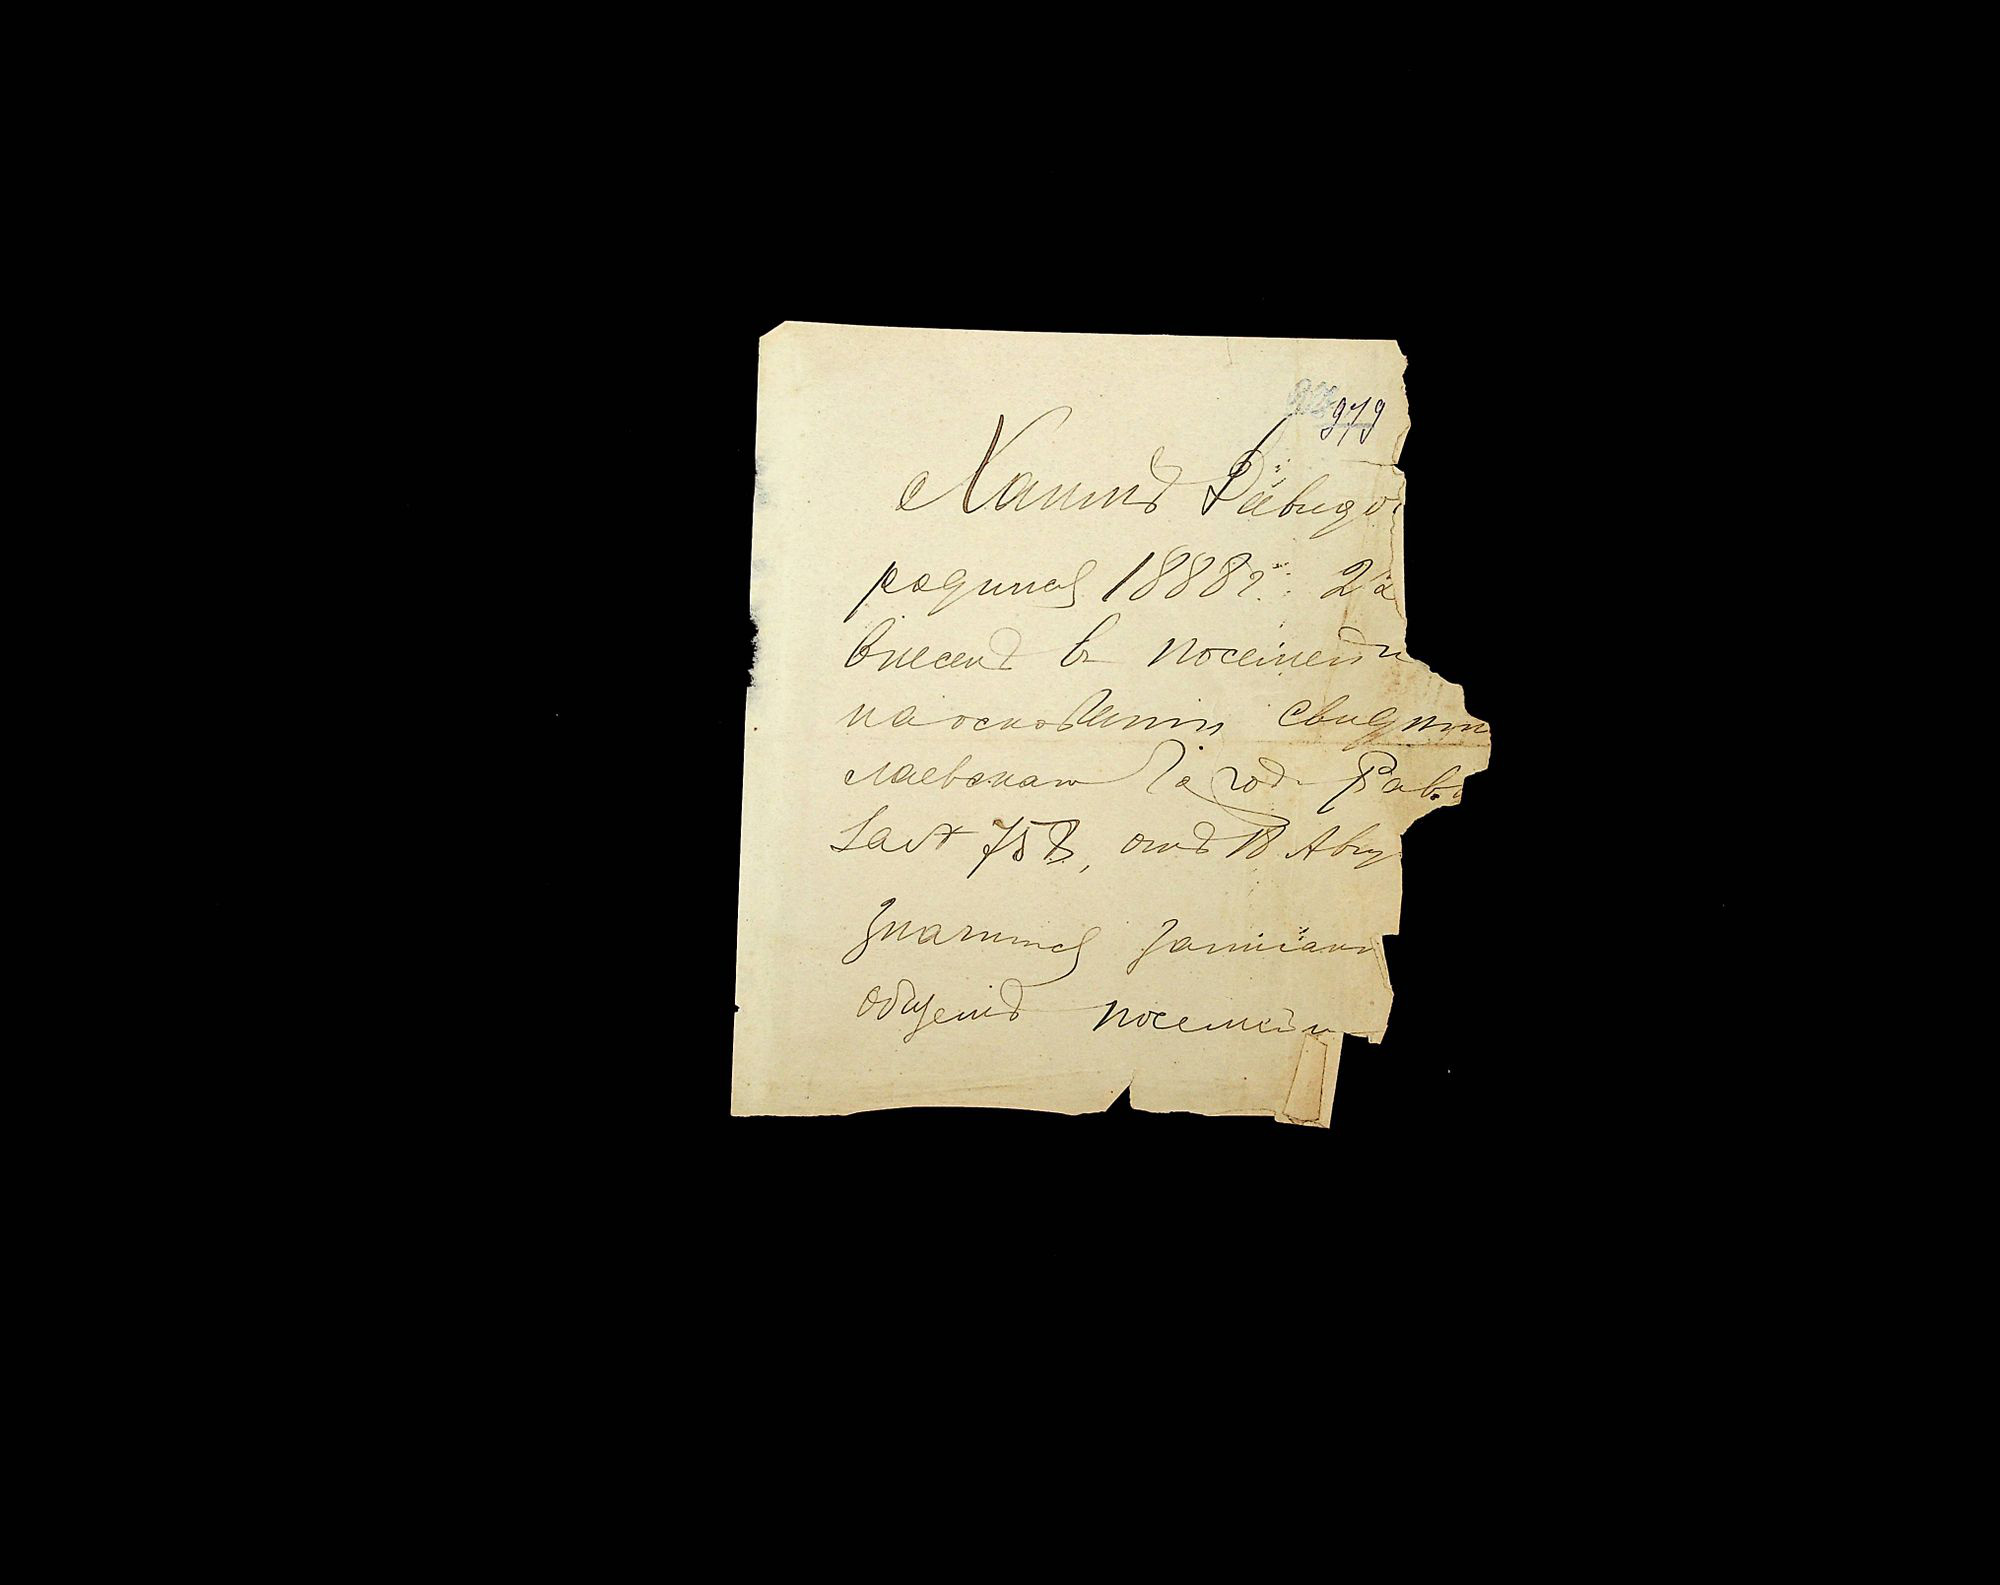 979
Хаимъ Давидо
родился 1888 г. 2
внесенъ въ посемей
на основаніи свидѣт
лаевскаго Гор. Рав
758, отъ 18 Авгу
Значится записан
общемъ посемей